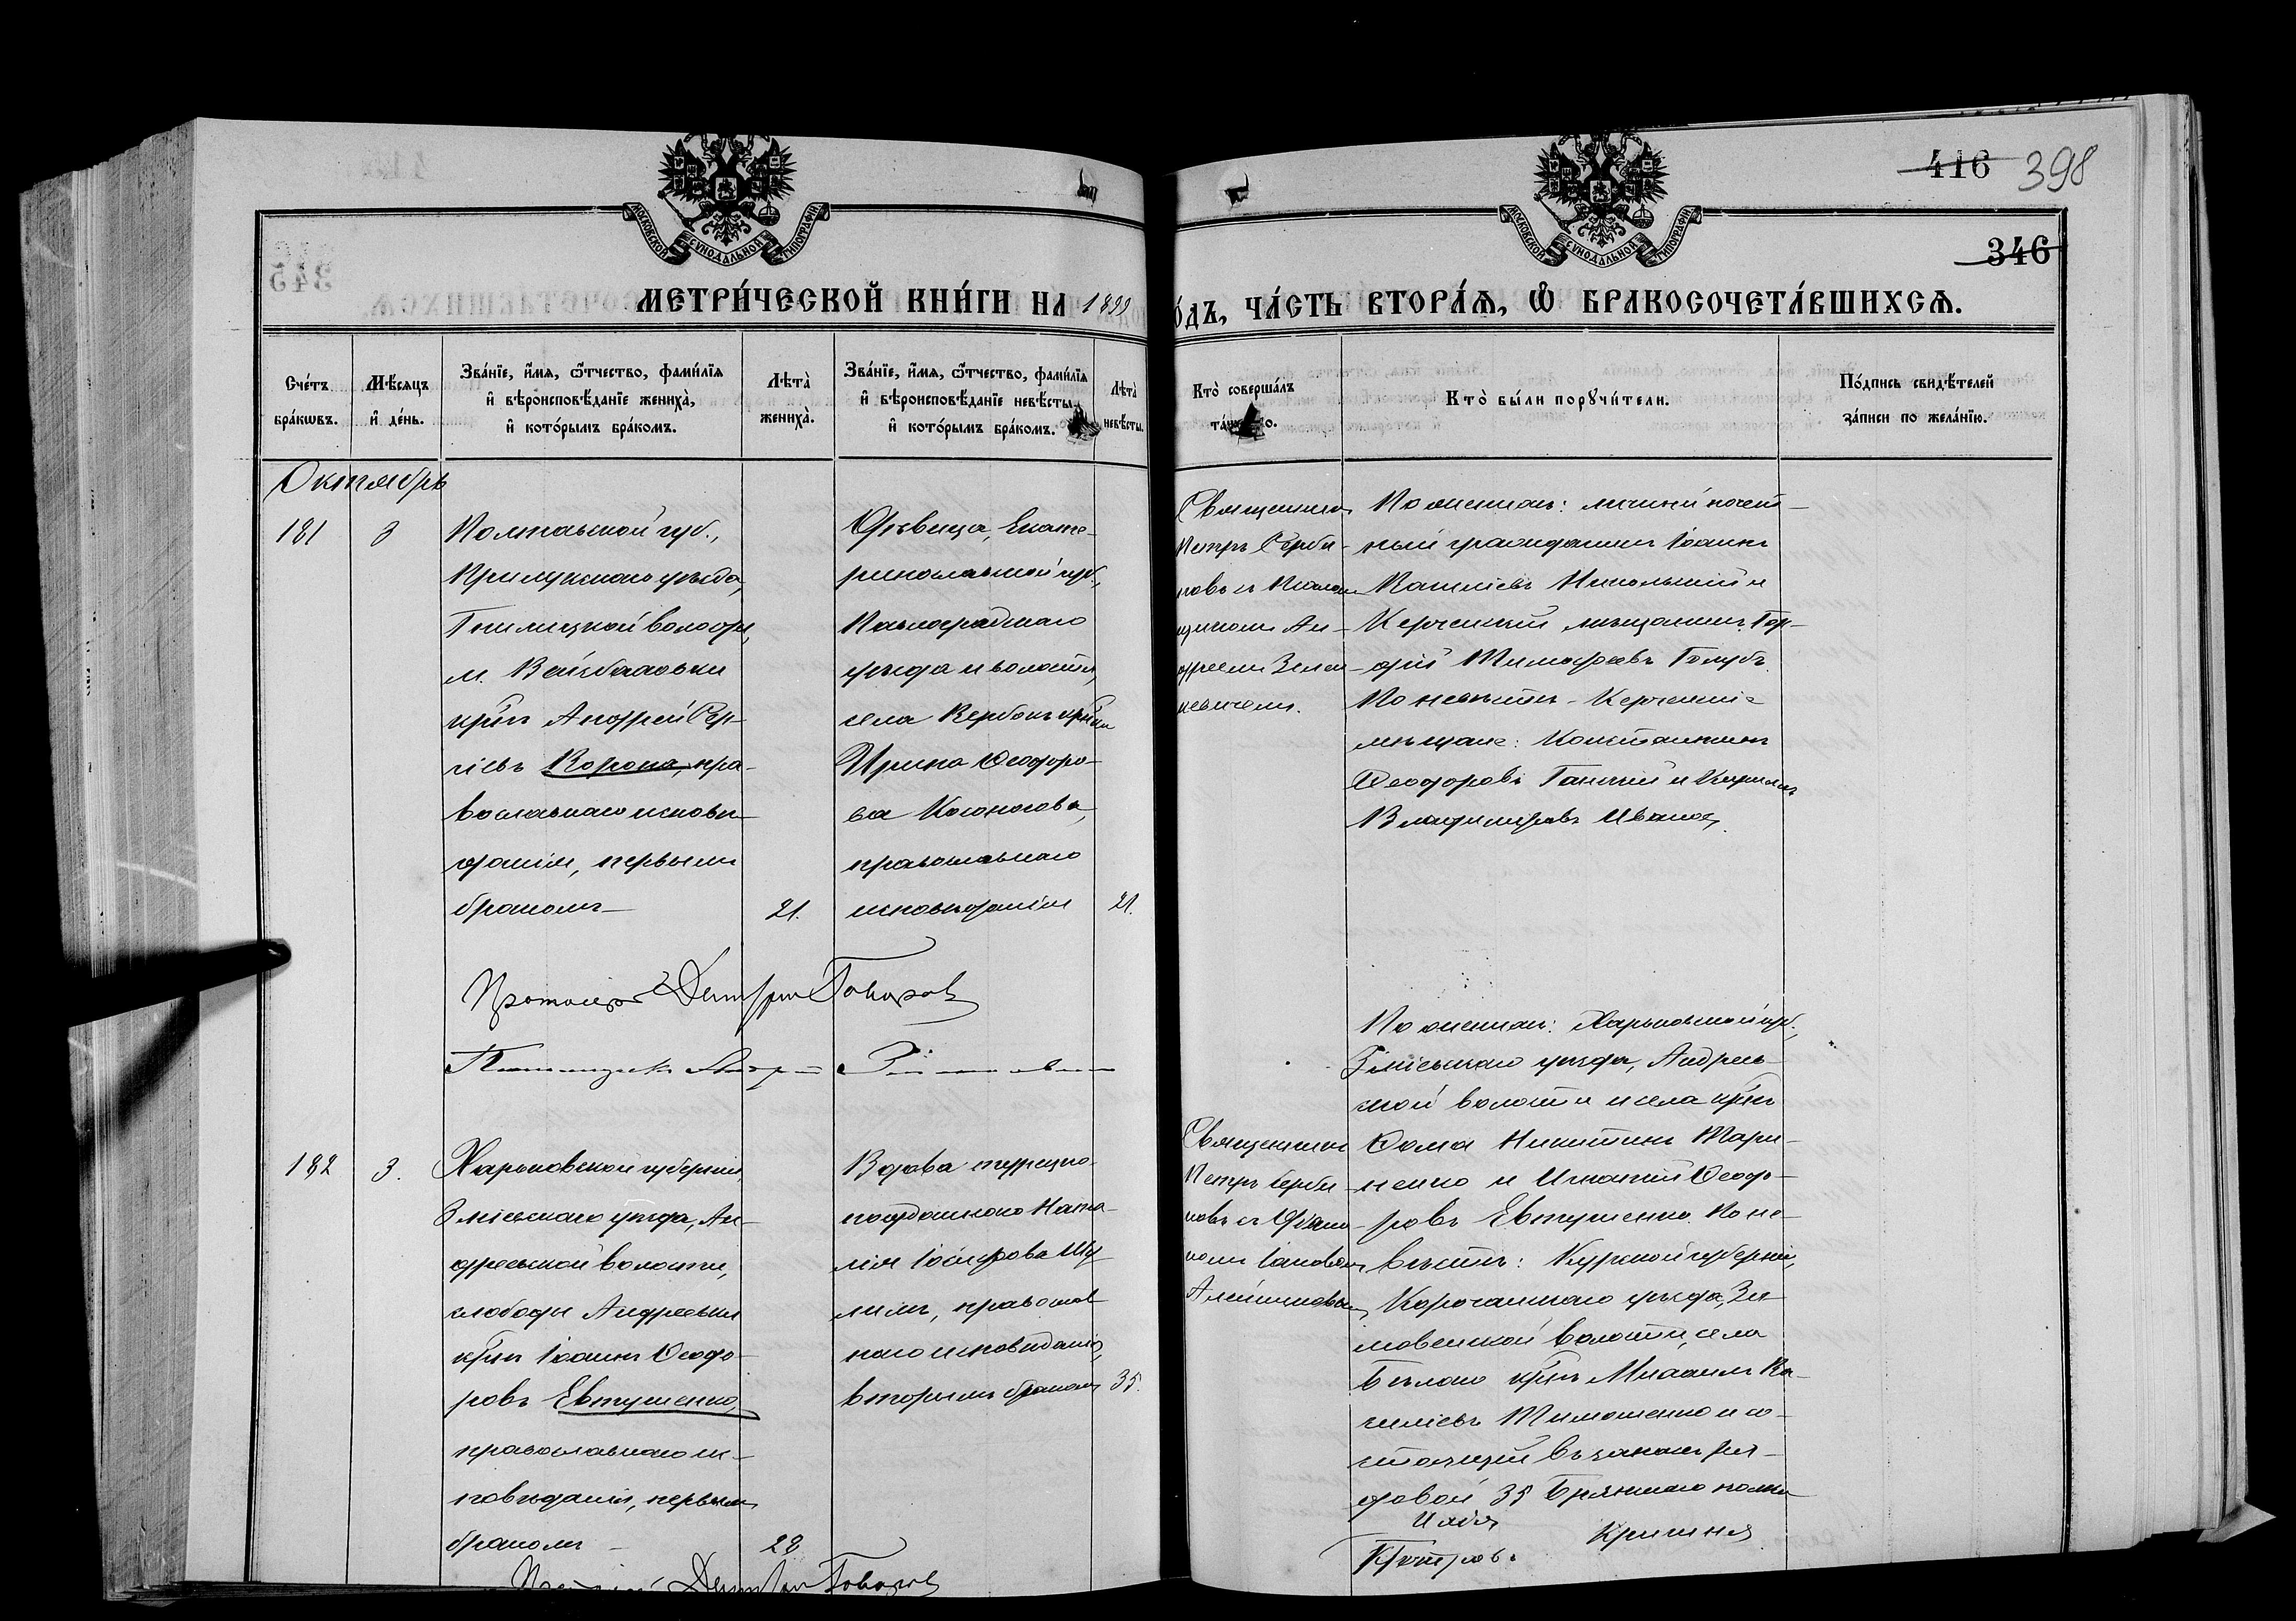 416 398
346
МОСКОВСКОЙ СѴНОДАЛЬНОЙ ТИПОГРАФІИ
МОСКОВСКОЙ СѴНОДАЛЬНОЙ ТИПОГРАФІИ
МЕТРИ́ЧЕСКОЙ КНИ́ГИ НА 1899
ГО́ДЪ, ЧА́СТЬ ВТОРА́Я, Ѡ БРАКОСОЧЕТА́ВШИХСЯ.
Сче́тъ бра́кѡвъ.
Мѣ́сяцъ и҆ де́нь.
Зва́нїе, и҆́мя, ѻ҆́тчество, фами́лїя
и҆ вѣроисповѣ́данїе жениха̀,
и҆ кото́рымъ бра́комъ.
Лѣта̀ жениха̀.
Зва́нїе, и҆́мя, ѻ҆́тчество, фами́лїя
и҆ вѣроисповѣ́данїе невѣ́сты,
и҆ кото́рымъ бра́комъ.
Лѣта̀ невѣ́сты.
Кто̀ соверша́лъ
Кто̀ бы́ли порꙋчи́тели.
По́дпись свидѣ́телей
за́писи по жела́нїю.
Октябрь
181
3
Полтавской губ.,
Прилукскаго уѣзда,
волости,
м.
крⷭ҇нъ Андрей Сер-
гіевъ Корона, пра-
вославнаго исповѣ-
данія, первымъ
бракомъ
21.
Дѣвица, Екате-
ринославской губ.,
Павлоградскаго
уѣзда и волости,
села Вербокъ
Ирина Ѳеодоро-
ва Косоногова,
православнаго
исповѣданія
21.
Священникъ
Петръ Серби-
новъ съ Псалом-
щикомъ Ан-
дреемъ Зелен-
кевичемъ.
По женихѣ: личный почет-
ный гражданинъ Іоаннъ
Василіевъ Никольскій и
Керченскій мѣщанинъ Гор-
дій Тимоѳеевъ Голубъ.
По невѣстѣ - Керченскіе
мѣщане: Константинъ
Ѳеодоровъ и Кириллъ
Владиміровъ Ивановъ.
Протоіерей Димитрій Говоровъ
Псаломщикъ Андрей
182
3.
Харьковской губерніи,
Зміевскаго уѣзда, Ан-
дреевской волости,
слободы Андреевки
крⷭ҇нъ Іоаннъ Ѳеодо-
ровъ Евтушенко,
православнаго ис-
повѣданія, первымъ
бракомъ
28
Вдова турецко-
подданнаго Ната-
лія Іосифова
православ
наго исповѣданія,
вторымъ бракомъ
35.
Священникъ
Петръ Серби-
новъ съ Діако-
номъ Іаковомъ
По женихѣ: Харьковской губ.,
Зміевскаго уѣзда, Андреев-
ской волости и села крⷭ҇нъ
Ѳома Никитинъ Мари-
ненко и Игнатій Ѳеодо-
ровъ Евтушенко. По не-
вѣстѣ: Курской губерніи,
Корочанскаго уѣзда, Зи-
мовенской волости, села
крⷭ҇нъ Михаилъ Ва-
силіевъ Тимошенко и со-
стоящій въ запасѣ ря-
довой 35 Брянскаго полка
Протоіерей Димитрій Говоровъ